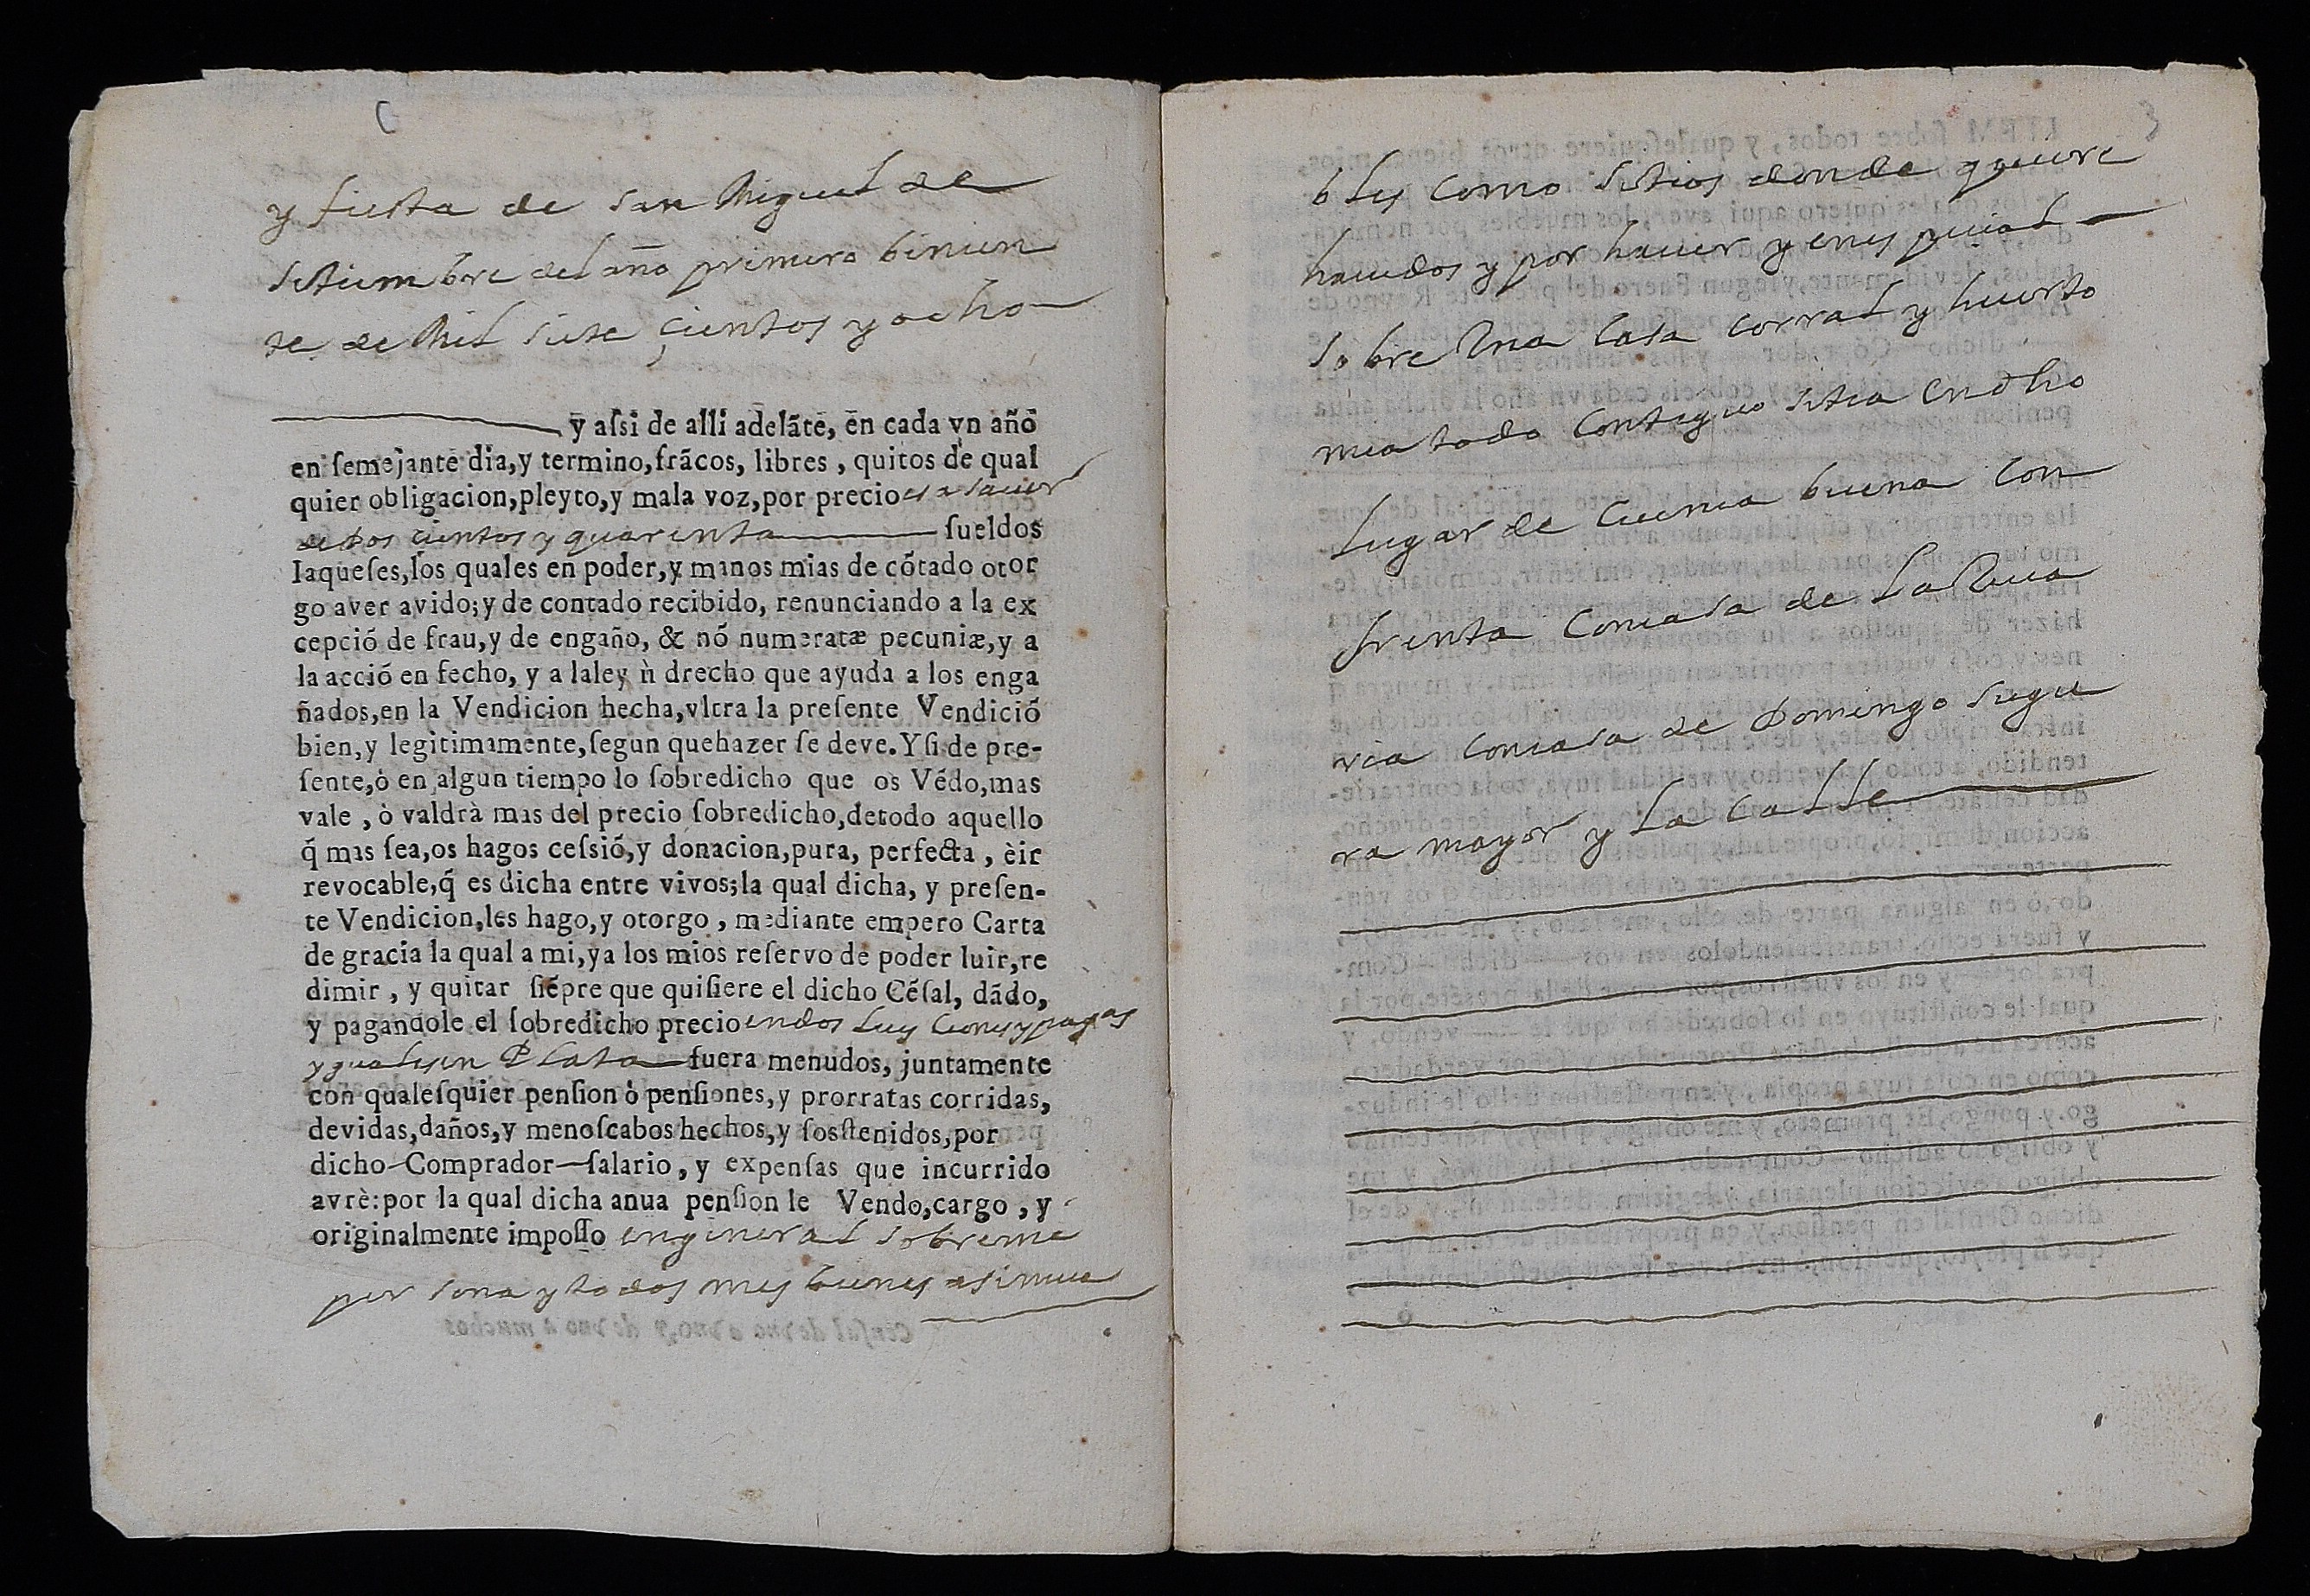 y fiesta de san Miguel de
setiembre del año primero binien
te de Mil siete cientos y ocho
y aſsi de alli adelāte, en cada vn año
en ſemejante dia,y termino,frācos, libres , quitos de qual
quier obligacion,pleyto,y mala voz,por precio es a sauer
de Dos cientos y quarenta ſueldos
Iaqueſes,los quales en poder,y manos mias de cōtado otor
go aver avido;y de contado recibido, renunciando a la ex
cepciō de frau,y de engaño, & nō numeratæ pecuniæ,y a
la acciō en fecho, y a laley ǹ drecho que ayuda a los enga
ñados,en la Vendicion hecha,vltra la preſente Vendiciō
bien,y legitimamente,ſegun quehazer ſe deve.Y ſi de pre-
ſente,ò en algun tiempo lo ſobredicho que os Vēdo,mas
vale , ò valdrà mas del precio ſobredicho,detodo aquello
q̄ mas ſea,os hagos ceſsiō,y donacion,pura, perfecta , èir
revocable,q̄ es dicha entre vivos;la qual dicha, y preſen-
te Vendicion,les hago,y otorgo , mediante empero Carta
de gracia la qual a mi,ya los mios reſervo de poder luir,re
dimir , y quitar ſiēpre que quiſiere el dicho Cēſal, dādo,
y pagandole el ſobredicho precio en dos Luyciones y pagas
yguales en Plata fuera menudos, juntamente
con qualeſquier penſion ò penſiones,y prorratas corridas,
devidas,daños,y menoſcabos hechos,y ſosſtenidos,por
dicho-Comprador—ſalario, y expenſas que incurrido
avrè:por la qual dicha anua penſion le Vendo,cargo , y
originalmente impoſſo en general sobre mi
persona y todos mis bienes asi mue
bles como sitios donde quiere
hauidos y por hauer y en especial
sobre Una Casa corral y huerto
mia todo contiguo sitia en dho
Lugar de Cuenca buena con
frenta con casa de La Viuda
con casa de Domingo
ra mayor y La Calle